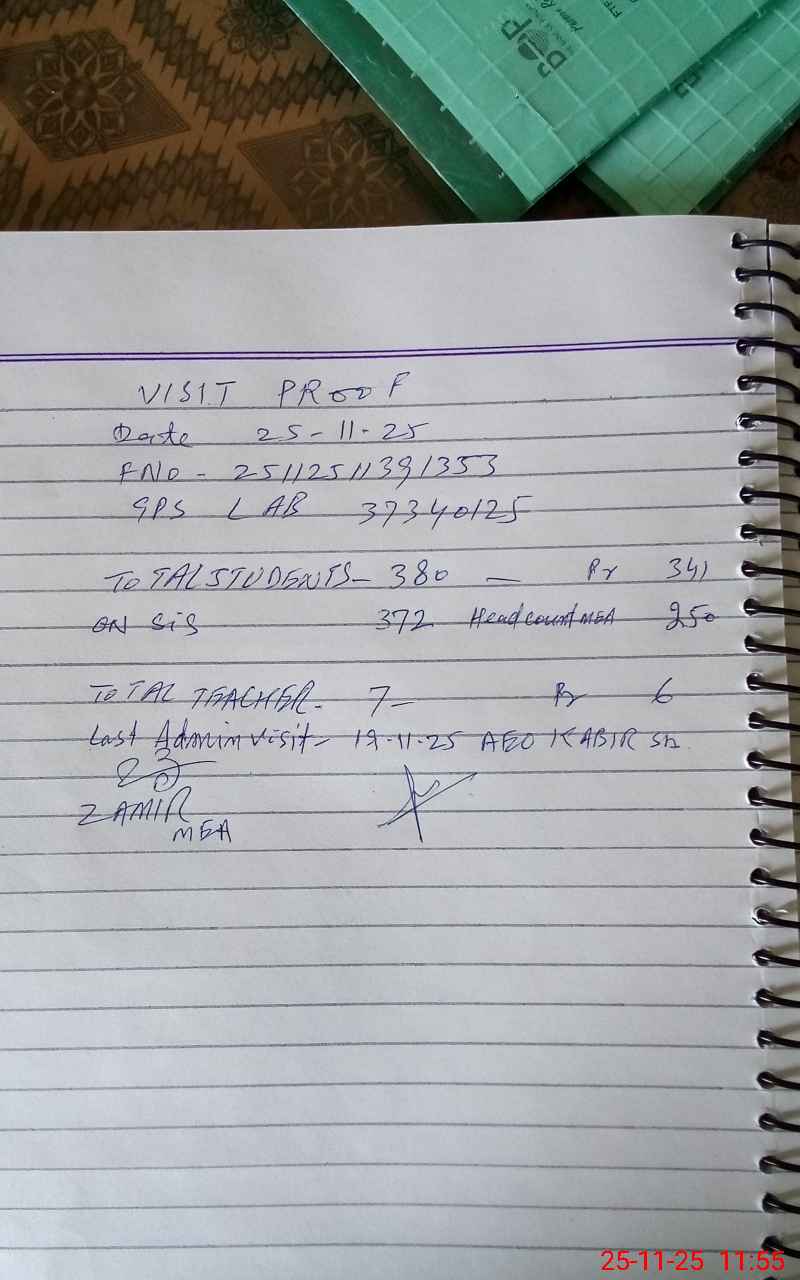 DOP
VISIT PROOF
Date 25-11-25
FNO - 25112511391353
GPS LAB 37340125
TOTAL STUDENTS - 380 - Pr 341
ON SiS 372 Head count MEA 250
TOTAL TEACHER - 7 - Pr 6
Last Admin visit - 19-11-25 AEO KABIR Sb.
ZAMIR
MEA
25-11-25 11:55